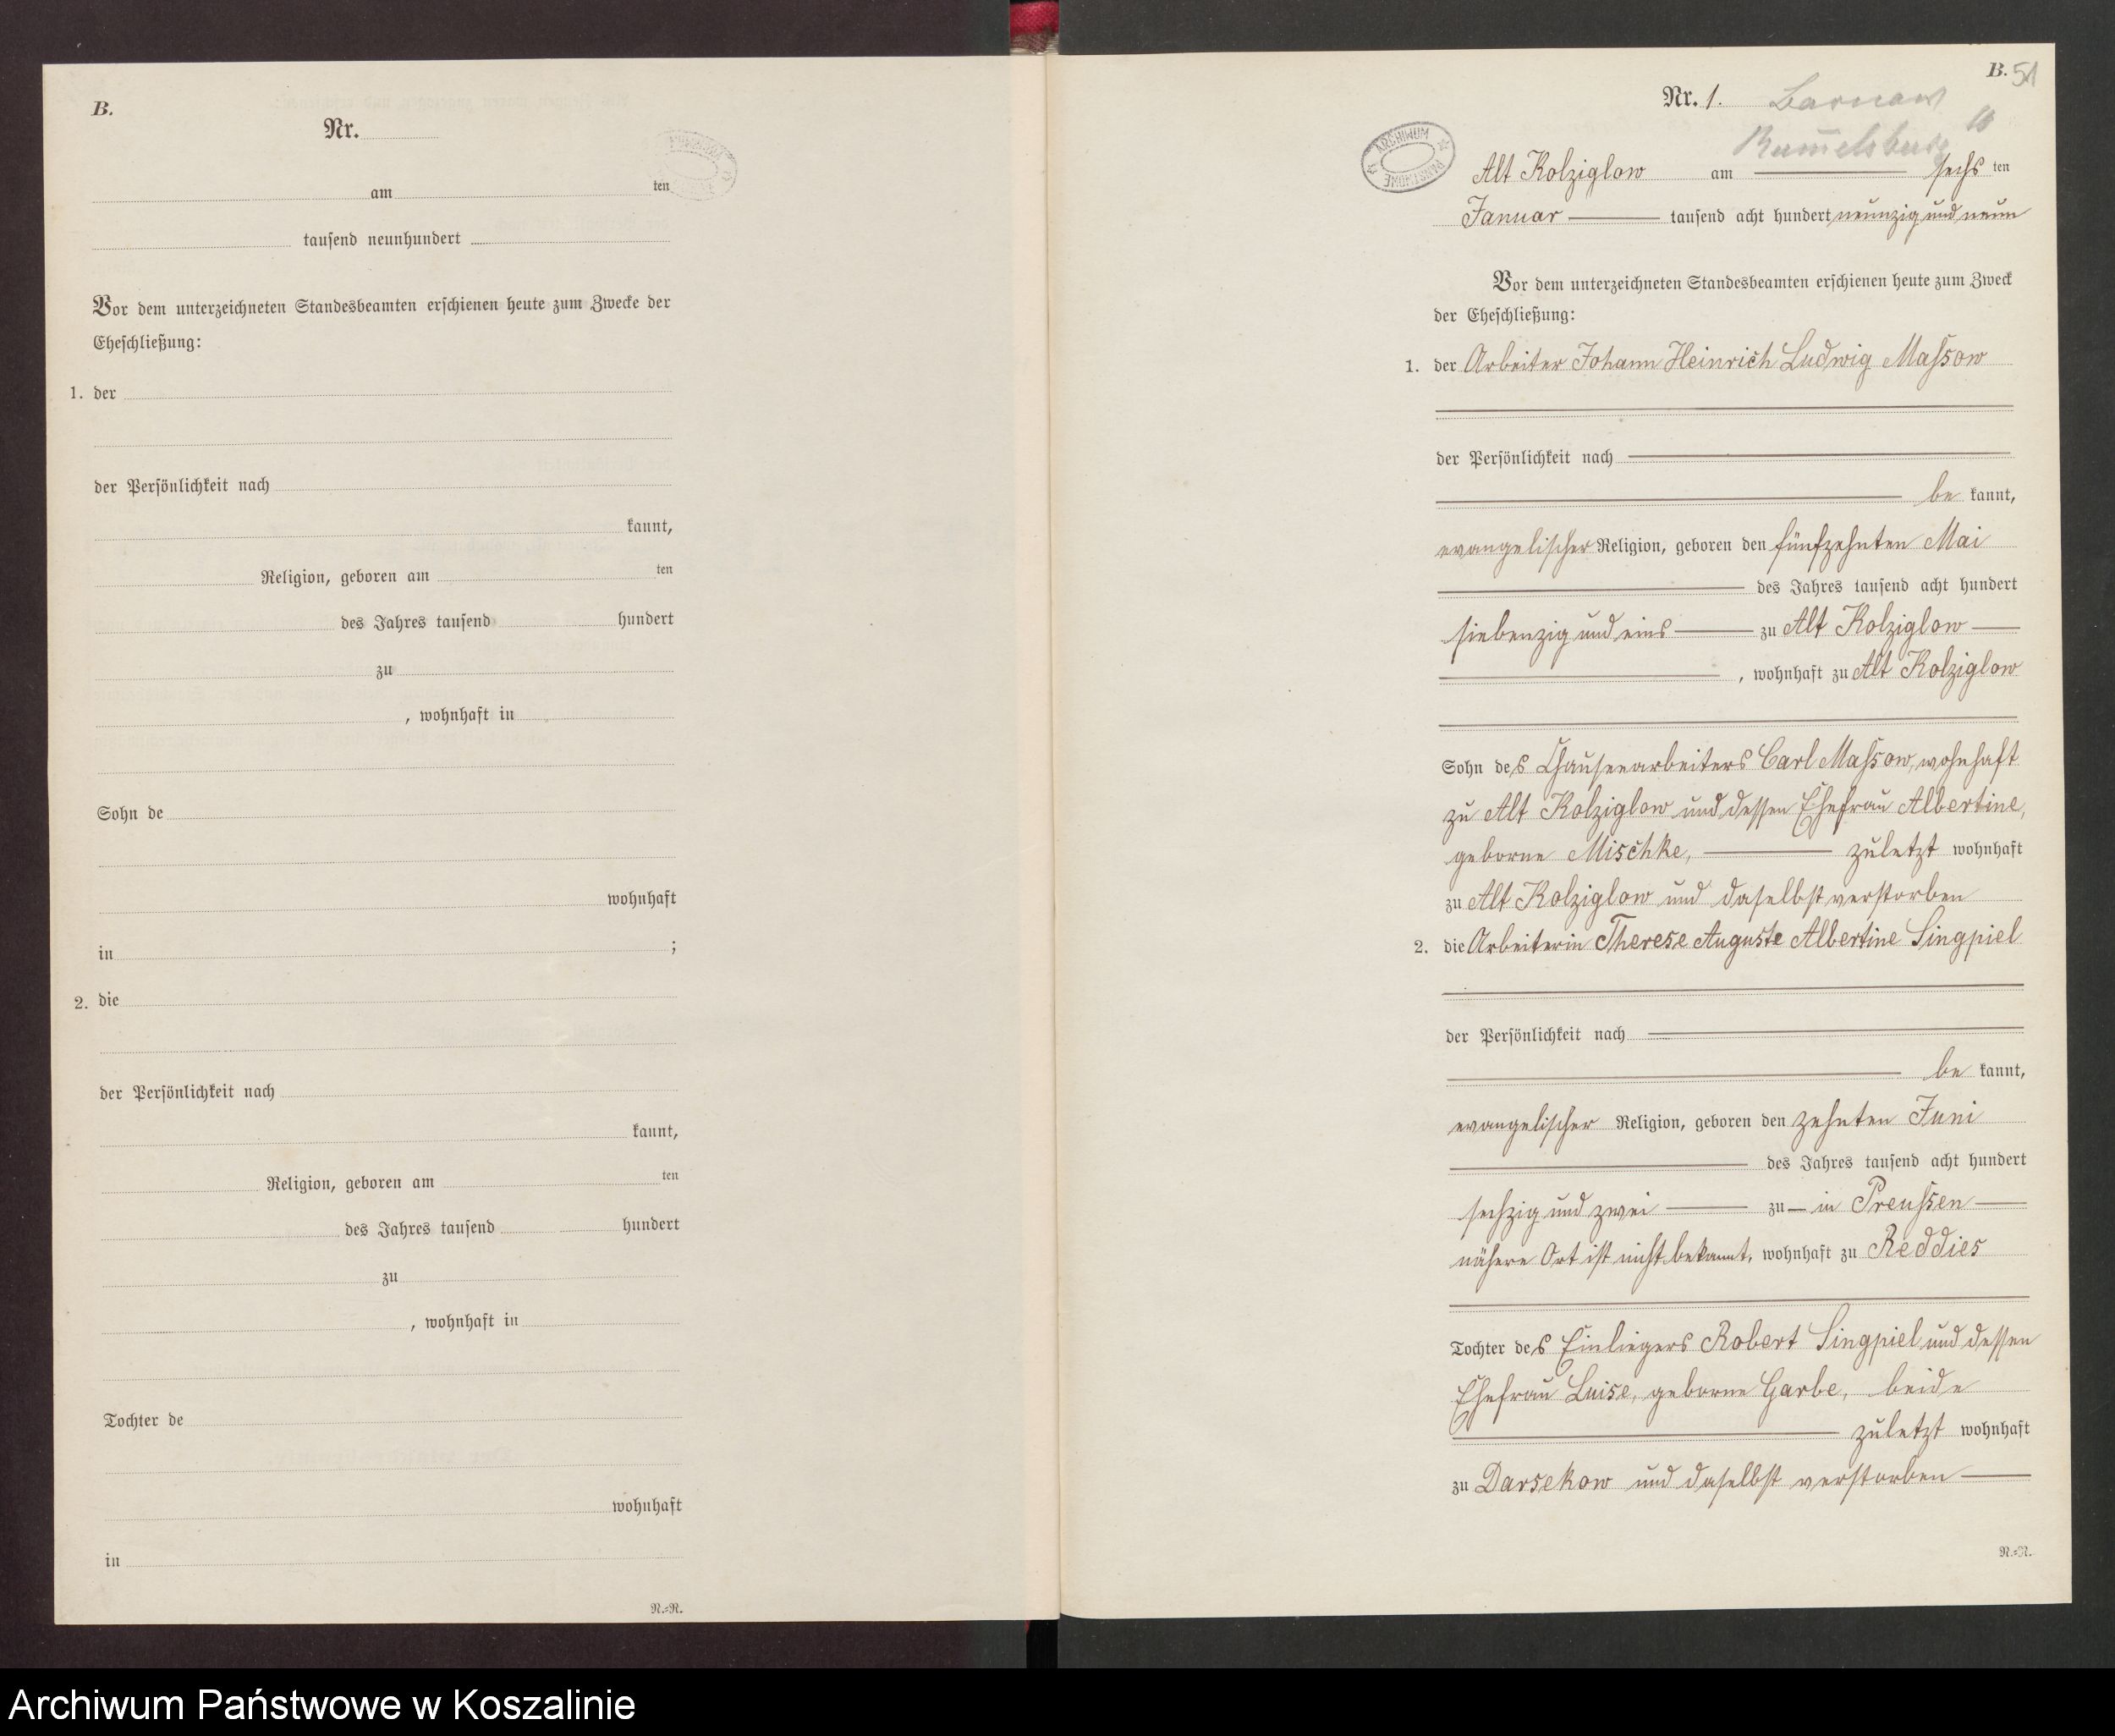 B.
Nr.
am ten
tausend neunhundert
Vor dem unterzeichneten Standesbeamten erschienen heute zum Zwecke der
Eheschließung:
1. der
der Persönlichkeit nach
kannt,
Religion, geboren am ten
des Jahres tausend hundert
zu
, wohnhaft in
Sohn de
wohnhaft
in ;
2. die
der Persönlichkeit nach
kannt,
Religion, geboren am ten
des Jahres tausend hundert
zu
, wohnhaft in
Tochter de
wohnhaft
in
N.=N.
B. 51
Nr. 1. Barnow
Rummelsburg
ARCHIWUM PAŃSTWOWE
Alt Kolziglow am sechs ten
Januar tausend acht hundert neunzig und neun
Vor dem unterzeichneten Standesbeamten erschienen heute zum Zweck
der Eheschließung:
1. der Arbeiter Johann Heinrich Ludwig Massow
der Persönlichkeit nach
be kannt,
evangelischer Religion, geboren den fünfzehnten Mai
des Jahres tausend acht hundert
siebenzig und eins zu Alt Kolziglow
, wohnhaft zu Alt Kolziglow
Sohn des Chauseearbeiters Carl Massow, wohnhaft
zu Alt Kolziglow und dessen Ehefrau Albertine,
geborne Mischke, zuletzt wohnhaft
zu Alt Kolziglow und daselbst verstorben
2. die Arbeiterin Therese Auguste Albertine Singpiel
der Persönlichkeit nach
be kannt,
evangelischer Religion, geboren den zehnten Juni
des Jahres tausend acht hundert
sechzig und zwei zu — in Preussen
nähere Ort ist nicht bekannt, wohnhaft zu Reddies
Tochter des Einliegers Robert Singpiel und dessen
Ehefrau Luise, geborne Garbe, beide
zuletzt wohnhaft
zu Darsekow und daselbst verstorben
N.=N.
Archiwum Państwowe w Koszalinie